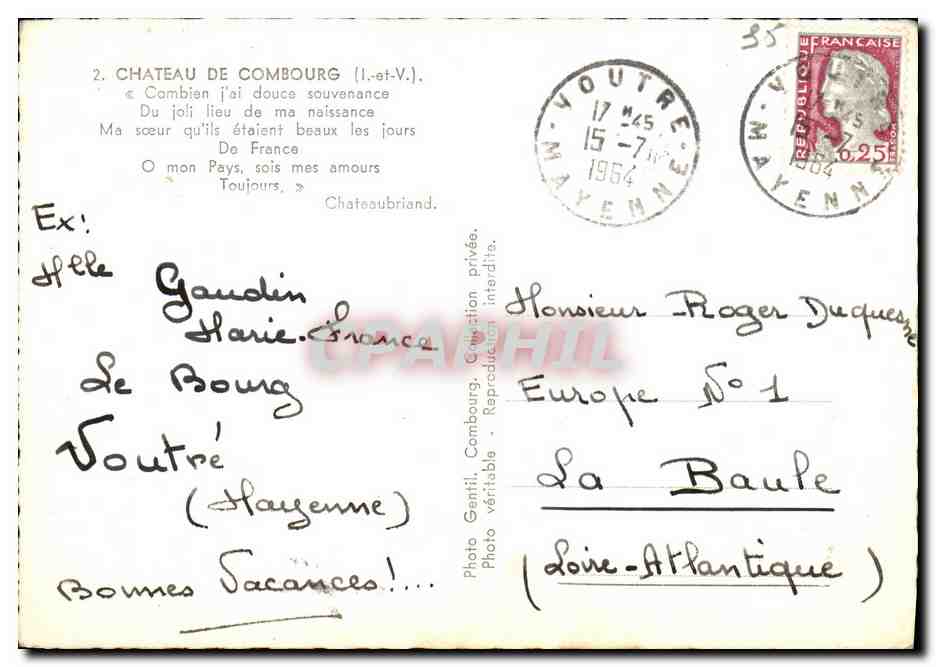 2. CHATEAU DE COMBOURG (I.-et-V.),
« Combien j'ai douce souvenance
Du joli lieu de ma naissance
Ma sœur qu'ils étaient beaux les jours
De France
O mon Pays, sois mes amours
Toujours, »
Chateaubriand.
Ex:
Mlle Gaudin
Marie-France
Le Bourg
Voutré
(Mayenne)
Bonnes Vacances!...
Photo Gentil, Combourg, Collection privée.
Photo véritable - Reproduction interdite.
35
VOUTRE
17 H 45
15 -7
1964
MAYENNE
VOUTRE
45
7
1964
MAYENNE
REPUBLIQUE FRANCAISE
0,25
Monsieur Roger Duquesne
Europe N° 1
La Baule
(Loire-Atlantique)
CPARPHIL